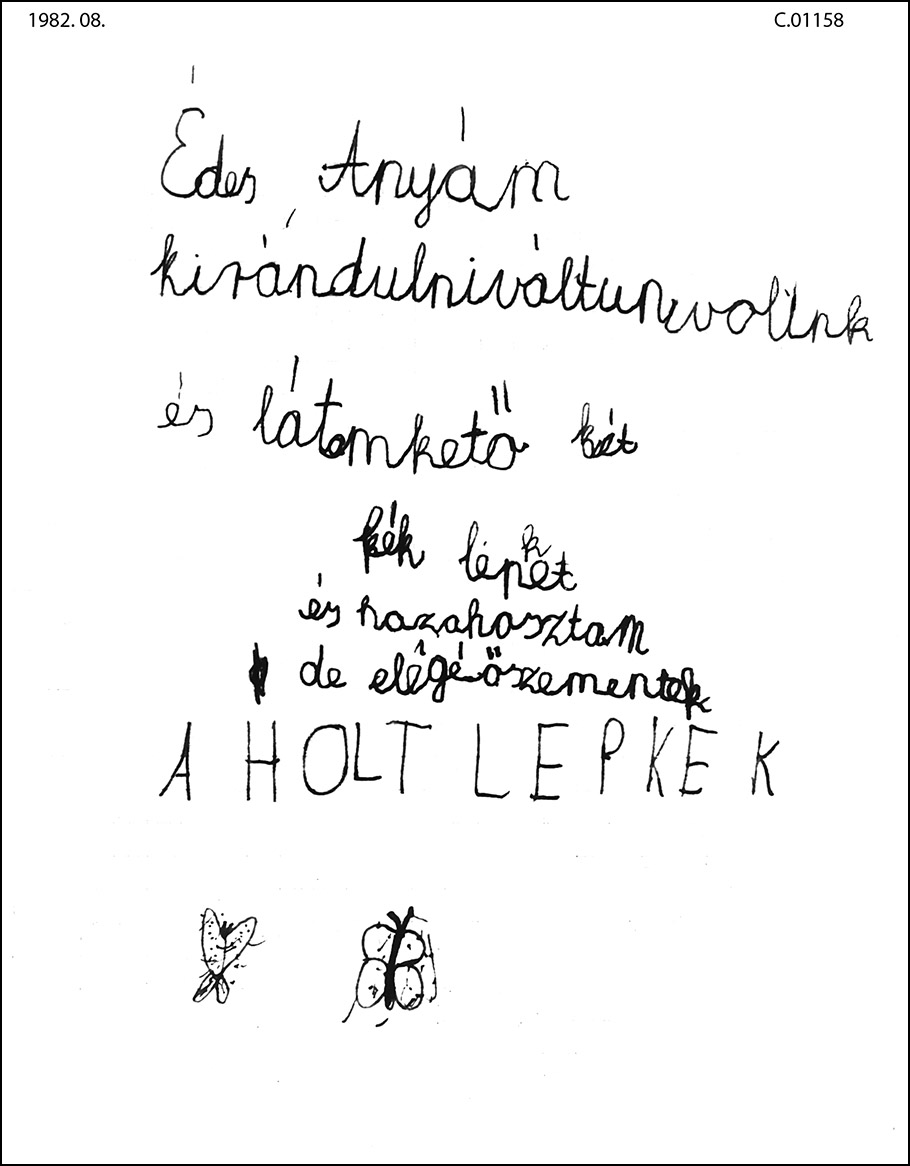 1982. 08.
C.01158
Édes Anyám
kirándulniváltunkvoltnk
és látomkető két
kék lepkét
és hazahosztam
de elégé őszementek
A HOLT LEPKEK